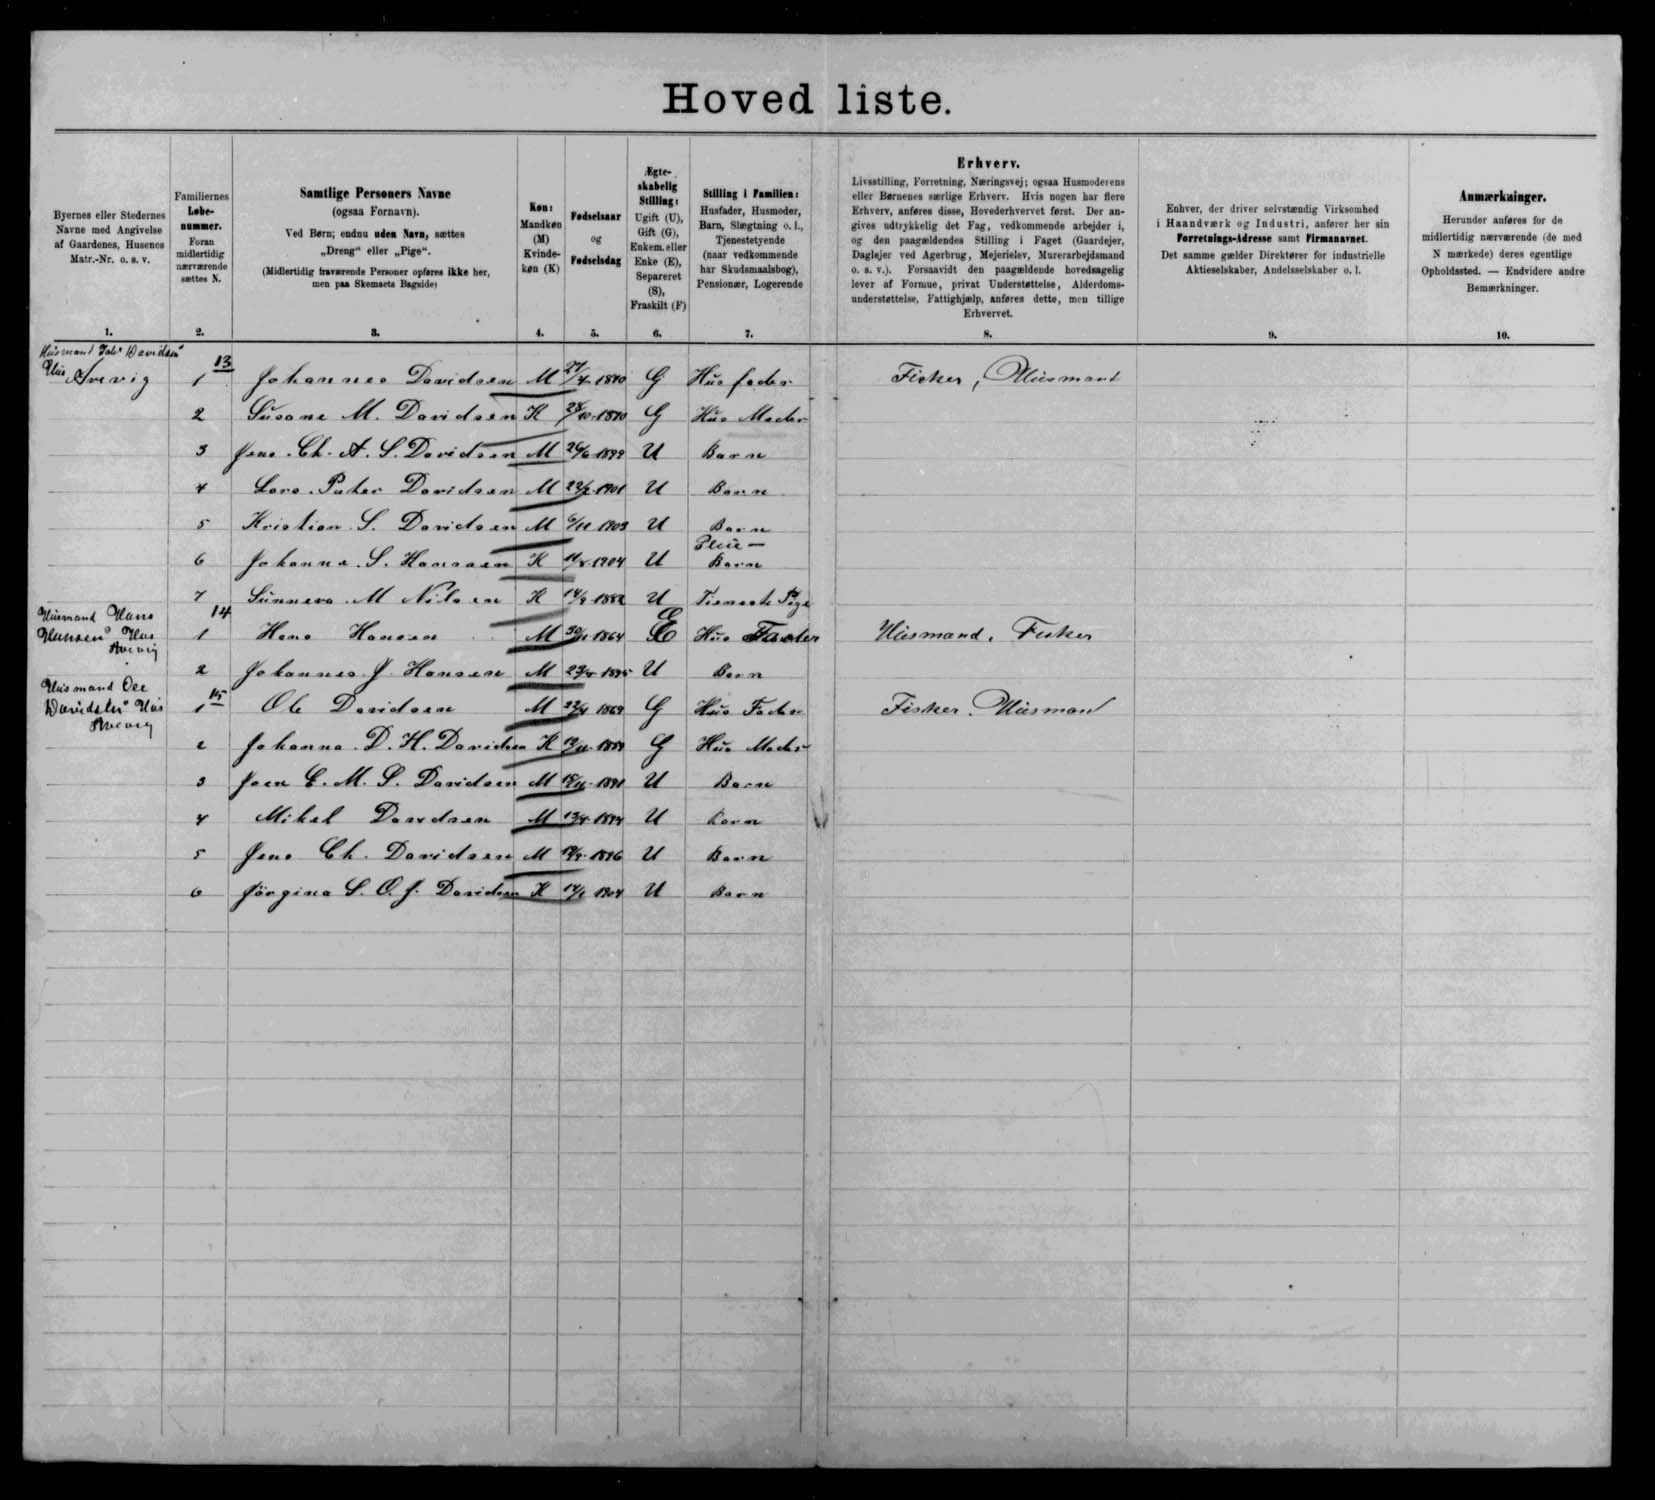 Hoved liste.
Byernes eller Stedernes
Navne med Angivelse
af Gaardenes, Husenes
Matr.-Nr. o. s. v.
1.
Familiernes
Løbe-
nummer.
Foran
midlertidig
nærværende
sættes N.
2.
Samtlige Personers Navne
(ogsaa Fornavn).
Ved Børn; endnu uden Navn, sættes
„Dreng“ eller „Pige“.
(Midlertidig fraværende Personer opføres ikke her,
men paa Skemaets Bagside)
3.
Køn:
Mandkøn
(M)
Kvinde-
køn (K)
4.
Fødselsaar
og
Fødselsdag
5.
Ægte-
skabelig
Stilling:
Ugift (U),
Gift (G),
Enkem. eller
Enke (E),
Separeret
(S),
Fraskilt (F)
6.
Stilling i Familien:
Husfader, Husmoder,
Barn, Slægtning o. l.,
Tjenestetyende
(naar vedkommende
har Skudsmaalsbog),
Pensionær, Logerende
7.
Erhverv.
Livsstilling, Forretning, Næringsvej; ogsaa Husmoderens
eller Børnenes særlige Erhverv. Hvis nogen har flere
Erhverv, anføres disse, Hovederhvervet først. Der an-
gives udtrykkelig det Fag, vedkommende arbejder i,
og den paagældendes Stilling i Faget (Gaardejer,
Daglejer ved Agerbrug, Mejerielev, Murerarbejdsmand
o. s. v.). Forsaavidt den paagældende hovedsagelig
lever af Formue, privat Understøttelse, Alderdoms-
understøttelse, Fattighjælp, anføres dette, men tillige
Erhvervet.
8.
Enhver, der driver selvstændig Virksomhed
i Haandværk og Industri, anfører her sin
Forretnings-Adresse samt Firmanavnet.
Det samme gælder Direktører for industrielle
Aktieselskaber, Andelsselskaber o. l.
9.
Anmærkninger.
Herunder anføres for de
midlertidig nærværende (de med
N mærkede) deres egentlige
Opholdssted. — Endvidere andre
Bemærkninger.
10.
Husmand Johs Davidsens
Hus Arevig 13
1 Johannes Davidsen M 1870 G Hus fader Fisker, Husmand
2 Susane M. Davidsen K 28/10-1870 G Hus Moder
3 Jens. Ch. A. S. Davidsen M 1899 U Barn
4 Lars. Peter Davidsen M 1901 U Barn
5 Kristian. S. Davidsen M 1903 U Barn
6 Johanna. S. Hansen K 1904 U Pleie- Barn
7 Sunneva. M Nilsen K 1882 U Tieneste Pige
Husmand Hans
Hansens Hus
Arevig 14
1 Hans Hansen M 1864 E Hus Fader Husmand, Fisker
2 Johannes J Hansen M 1895 U Barn
Husmand Ole
Davidsens Hus
Arevig 15
1 Ole Davidsen M 1869 G Hus Fader Fisker, Husmand
2 Johanna D. H. Davidsen K G Hus Moder
3 Joen C. M. S. Davidsen M 1891 U Barn
4 Mikel Davidsen M 1894 U Barn
5 Jens Ch. Davidsen M 1896 U Barn
6 Jörgina S. O. J. Davidsen K 1904 U Barn